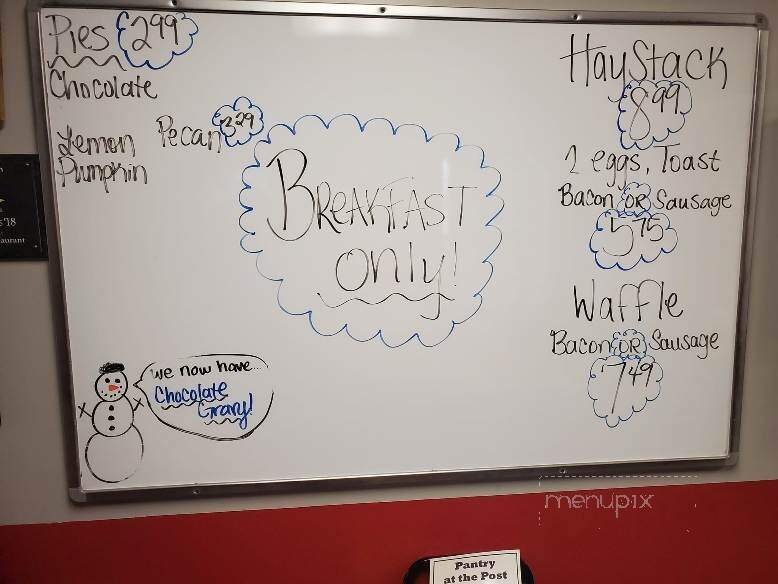 Pies 2.99
Chocolate
Lemon
Pumpkin
Pecan 3.29
BREAKFAST
only!
HayStack
8.99
2 eggs, Toast
Bacon OR Sausage
5.75
Waffle
Bacon OR Sausage
7.49
we now have...
Chocolate
Gravy!
menupix
Pantry
at the Post